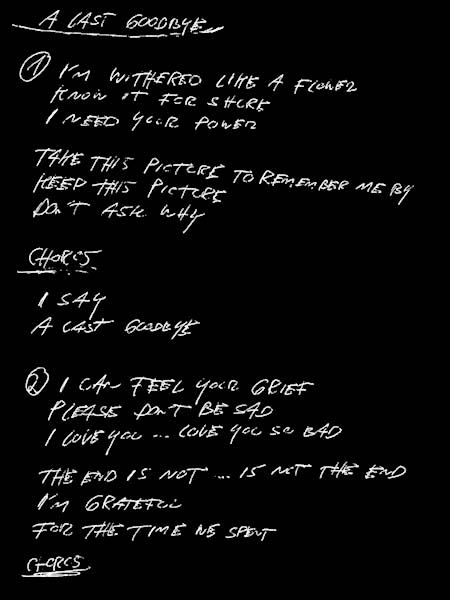 A LAST GOODBYE
1 I'M WITHERED LIKE A FLOWER
KNOW IT FOR SHURE
I NEED YOUR POWER
TAKE THIS PICTURE TO REMEMBER ME BY
KEEP THIS PICTURE
DON'T ASK WHY
CHORUS
I SAY
A LAST GOODBYE
2 I CAN FEEL YOUR GRIEF
PLEASE DON'T BE SAD
I LOVE YOU ... LOVE YOU SO BAD
THE END IS NOT ... IS NOT THE END
I'M GRATEFUL
FOR THE TIME WE SPENT
CHORUS